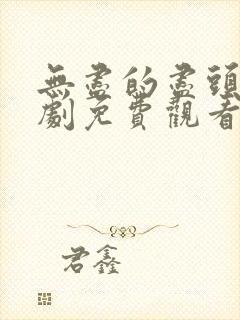 無盡的盡頭
劇免費觀看
君鑫